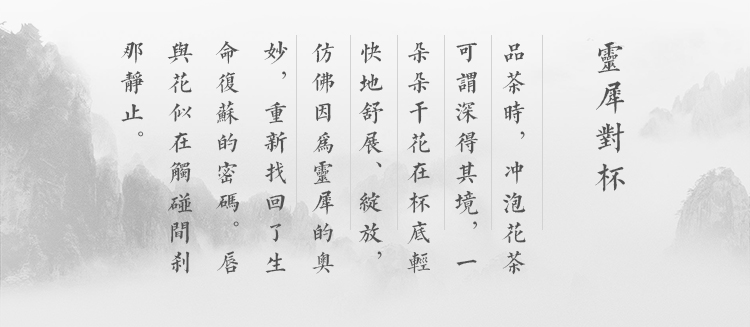 靈犀對杯
品茶時，冲泡花茶
可謂深得其境，一
朵朵干花在杯底輕
快地舒展、綻放，
仿佛因爲靈犀的奧
妙，重新找回了生
命復蘇的密碼。唇
與花似在觸碰間刹
那靜止。